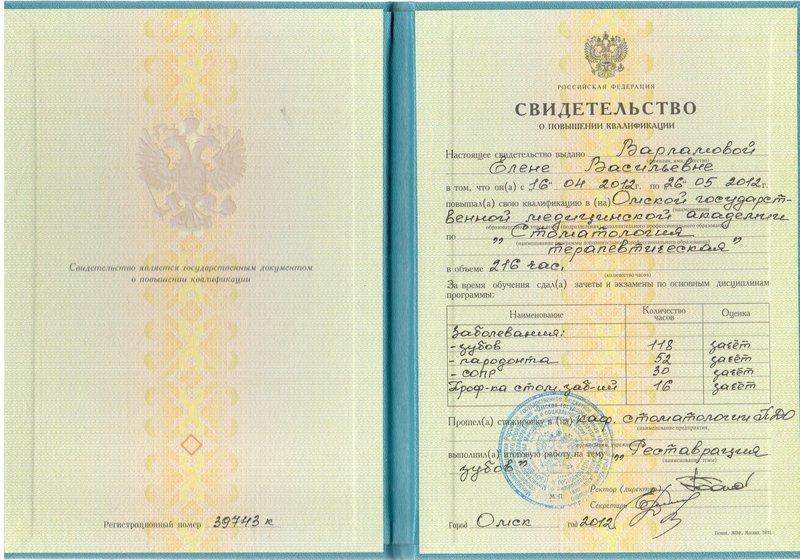 Свидетельство является государственным документом
о повышении квалификации
Регистрационный номер 39743 к
РОССИЙСКАЯ ФЕДЕРАЦИЯ
СВИДЕТЕЛЬСТВО
О ПОВЫШЕНИИ КВАЛИФИКАЦИИ
Настоящее свидетельство выдано Варламовой
(фамилия, имя, отчество)
Елене Васильевне
в том, что он(а) с 16 04 2012г. по 26 05 2012г.
повышал(а) свою квалификацию в (на) Омской государст-
(наименование
венной медицинской академии
образовательного учреждения (подразделения) дополнительного профессионального образования)
по „Стоматология
(наименование программы дополнительного профессионального образования)
терапевтическая"
в объеме 216 час.
(количество часов)
За время обучения сдал(а) зачеты и экзамены по основным дисциплинам
программы:
Наименование Количество часов Оценка
Заболевания:
- зубов 118 зачёт
- пародонта 52 зачёт
- СОПР 30 зачёт
Проф-ка стом. заб-ий 16 зачёт
Прошел(а) стажировку в (на) каф. стоматологии ПДО
(наименование предприятия,
выполнил(а) итоговую работу на тему „Реставрация
(наименование темы)
зубов"
М. П.
Ректор (директор)
Секретарь
Город Омск год 2012